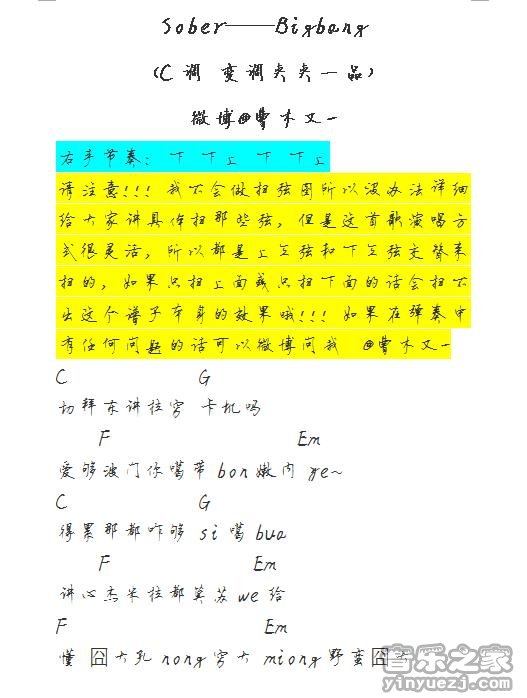 Sober——Bigbang
（C 调 变调夹夹一品）
微博@曹木又一
右手节奏：下 下上 下 下上
请注意！！！我不会做扫弦图所以没办法详细
给大家讲具体扫那些弦，但是这首歌演唱方
式很灵活，所以都是上三弦和下三弦交替来
扫的，如果只扫上面或只扫下面的话会扫不
出这个谱子本身的效果哦！！！如果在弹奏中
有任何问题的话可以微博问我 @曹木又一
C G
切拜东讲拉穷 卡机吗
F Em
爱够波门你噶带 bon 嫩内 ye~
C G
得累那都咋够 si 噶 bua
F Em
讲心杰米拉都莫苏 we 给
F Em
懂 囧大乳 nong 穷大 miong 野蛮囧大
音乐之家
yinyuezj.com